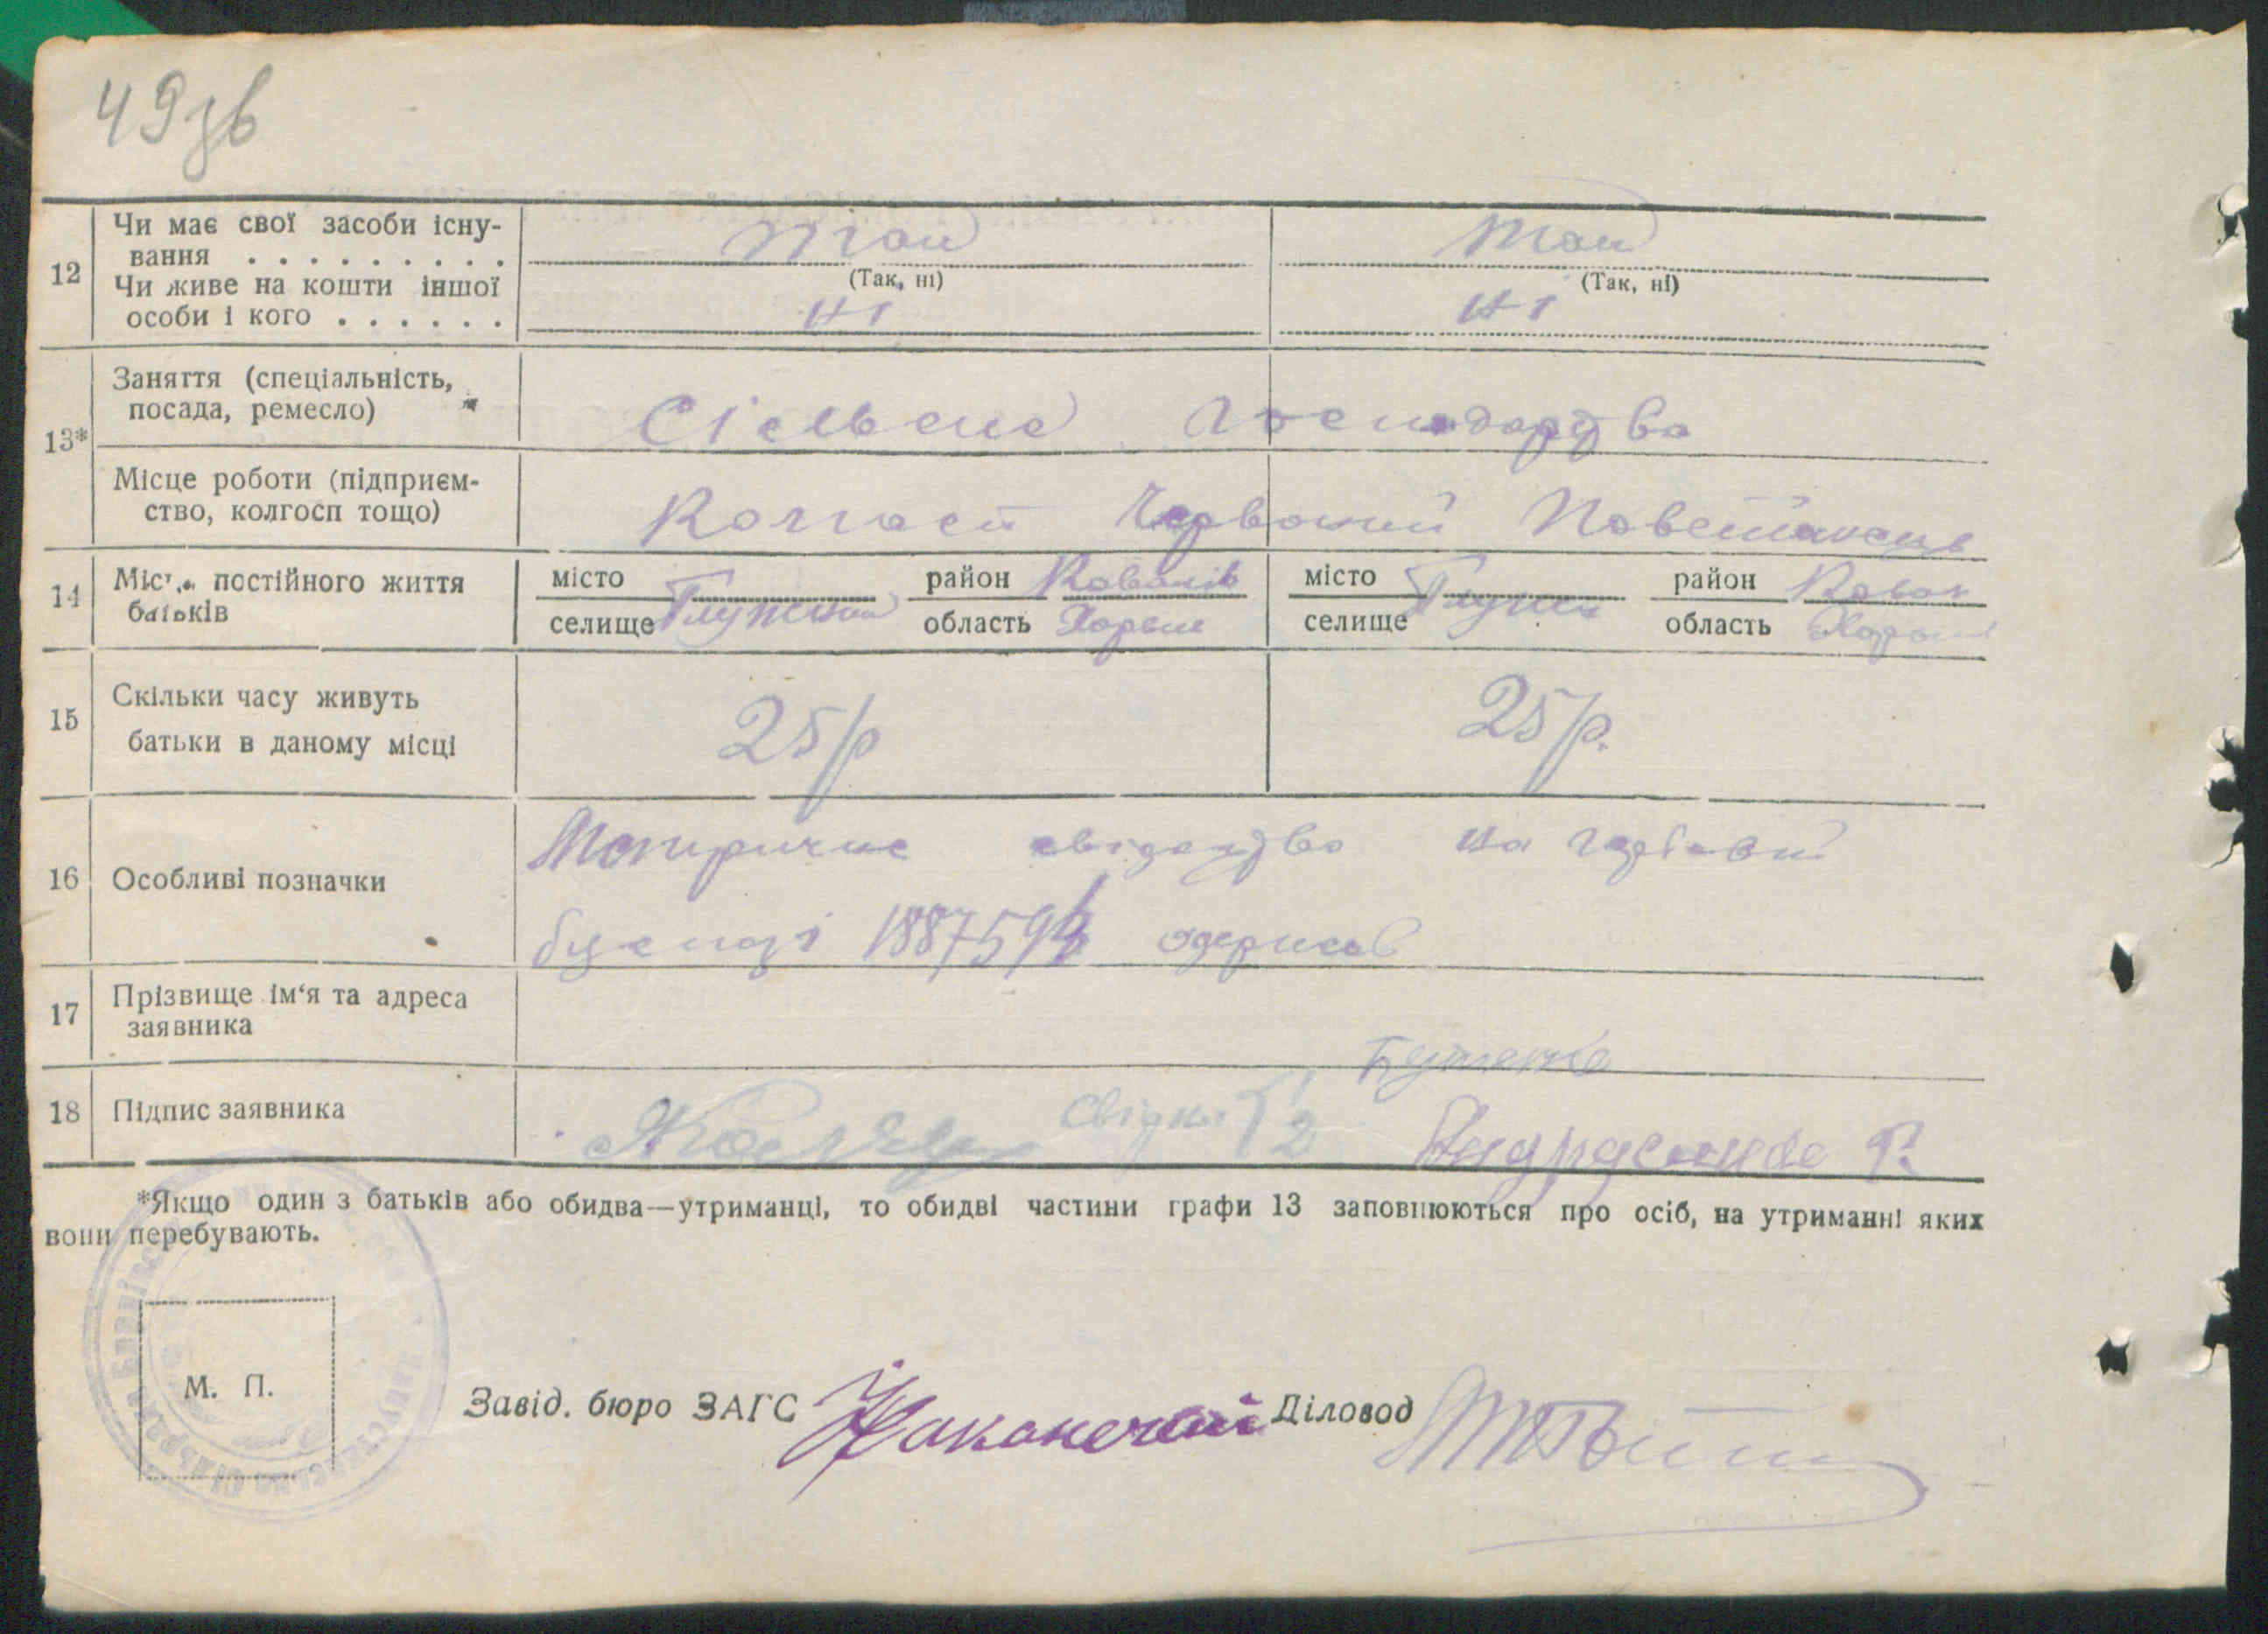 49зв
12 Чи має свої засоби існу-
вання . . . . . . . . . Так Так
(Так, ні) (Так, ні)
Чи живе на кошти іншої
особи і кого . . . . . . ні ні
13* Заняття (спеціальність,
посада, ремесло) Сільське господарство
Місце роботи (підприєм-
ство, колгосп тощо) Колгосп Червоний Повстанець
14 Місце постійного життя місто район Ковалів місто район Ковал
батьків селище область Харьк селище область Харьк
15 Скільки часу живуть
батьки в даному місці 25/р 25/р.
16 Особливі позначки Метричне свідоцтво на гербовій
бумазі одержав
17 Прізвище ім‘я та адреса
заявника
18 Підпис заявника Свідки 1 2
*Якщо один з батьків або обидва—утриманці, то обидві частини графи 13 заповнюються про осіб, на утриманні яких
вони перебувають.
М. П.
Завід. бюро ЗАГС Діловод